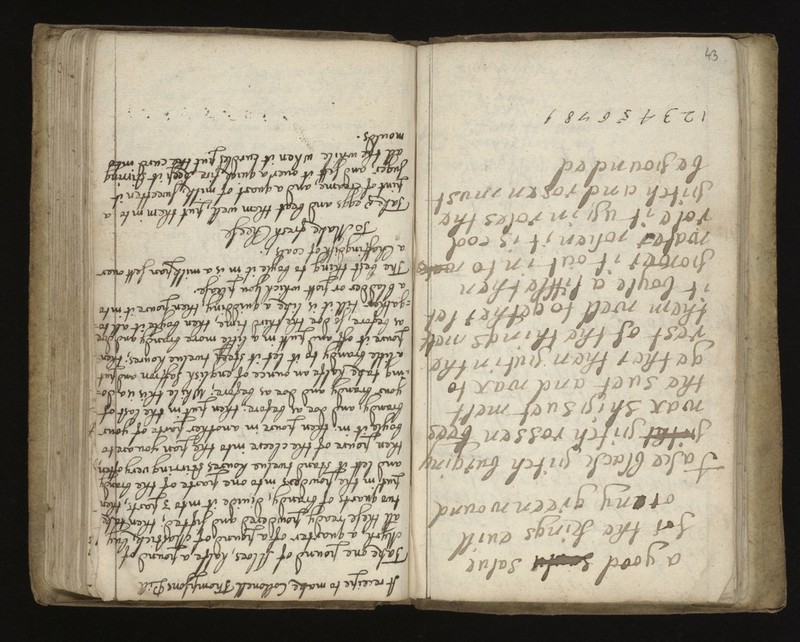 a good salve
for the kings evill
or any green wound
take black pitch burginy
pitch rossen bees
wax ship suet melt
the suet and wax to
gether then put in the
rest of the things melt
them well together let
it boyle a little then
power it out in to
water when it is cool
role it up in roles the
pitch and rosen must
be pounded
1 2 3 4 5 6 7 8 9
43
A receipe to make Colonell Thompsons Pill
Take one pound of Alloes, halfe a pound of
Myrrh, a quarter of a pound of Mastick, buy
all these ready poudered and sifted, then take
two quarts of brandy, divide it into 3 parts, then
put in the pouders into one parte of the brandy
and lett it stand twelve houres stirring very often,
then poure of the cleere into the pan you are to
boyle it in, then poure in another parte of your
brandy, and doe as before, then put in the last of
your brandy and doe as before, While this is do-
ing take halfe an ounce of english saffron and put
a litle brandy to it let it steep twelve houres, then
poure it off, and put in a litle more brandy and doe
as before, so doe the third time, then boyle it all to-
gather till it is like a pudding, then poure it into
a bladder or pott which you please.
The best thing to boyle it in is a milk pan sett over
a Chaffingdish of coals.
To Make fresh Cheese
Take 8 eggs and beat them well, put them into a
pint of creame, and a quart of milk, sweeten it
suger and sett it over a quick fire, keep it stirring
all the while when it curdles put the curd into
moulds.